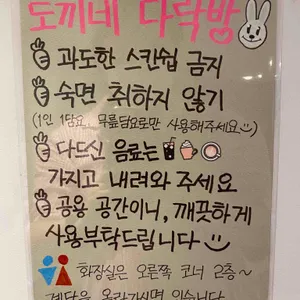 토끼네 다락방
과도한 스킨쉽 금지
숙면 취하지 않기
(1인 1담요, 무릎담요로만 사용해주세요)
다드신 음료는
가지고 내려와 주세요
공용 공간이니, 깨끗하게
사용부탁드립니다
화장실은 오른쪽 코너 2층~
계단을 올라가시면 있습니다